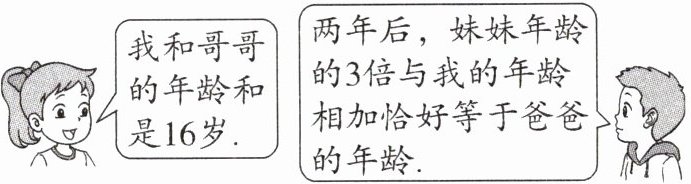 我和哥哥
的年龄和
是16岁.
两年后，妹妹年龄
的3倍与我的年龄
相加恰好等于爸爸
的年龄.